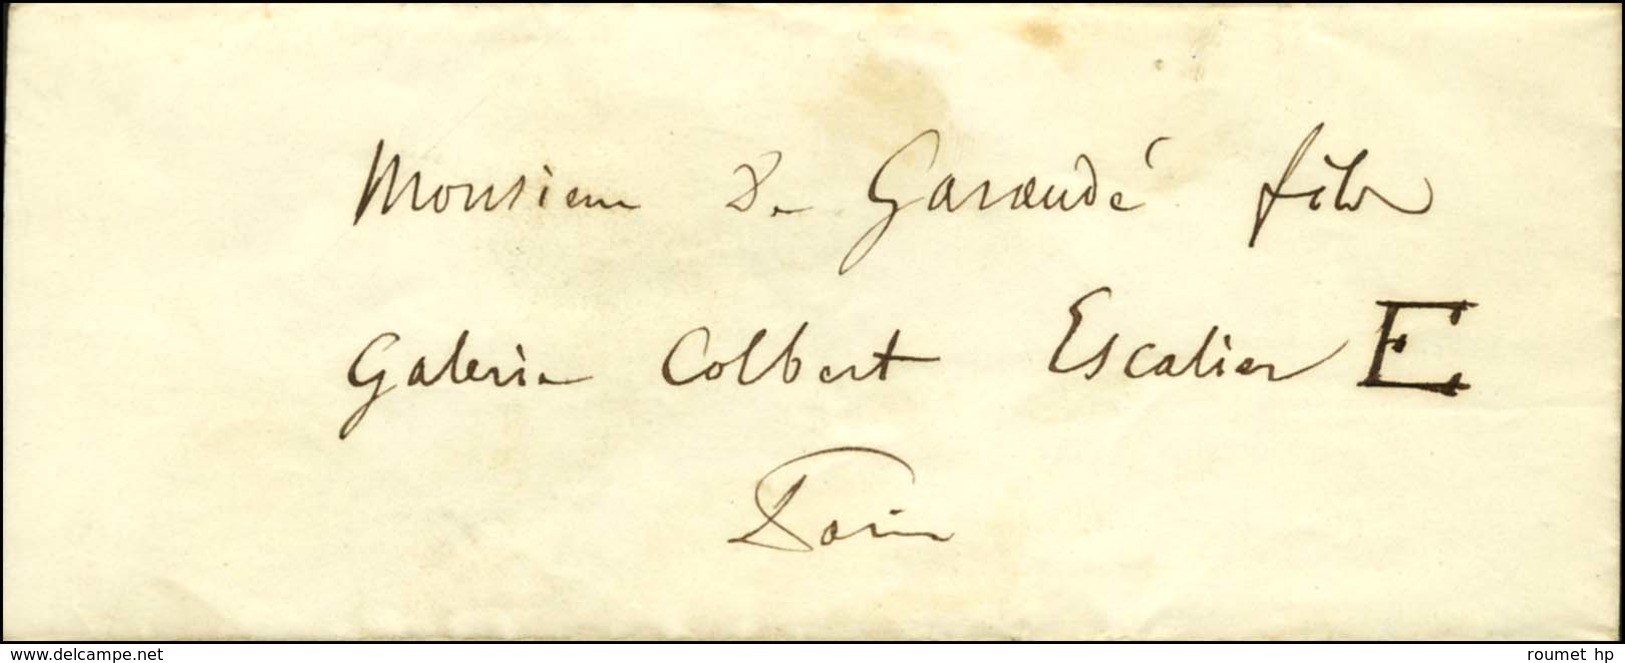 Monsieur De Garaudé fils
Galerie Colbert Escalier E
Paris
www.delcampe.net
roumet hp